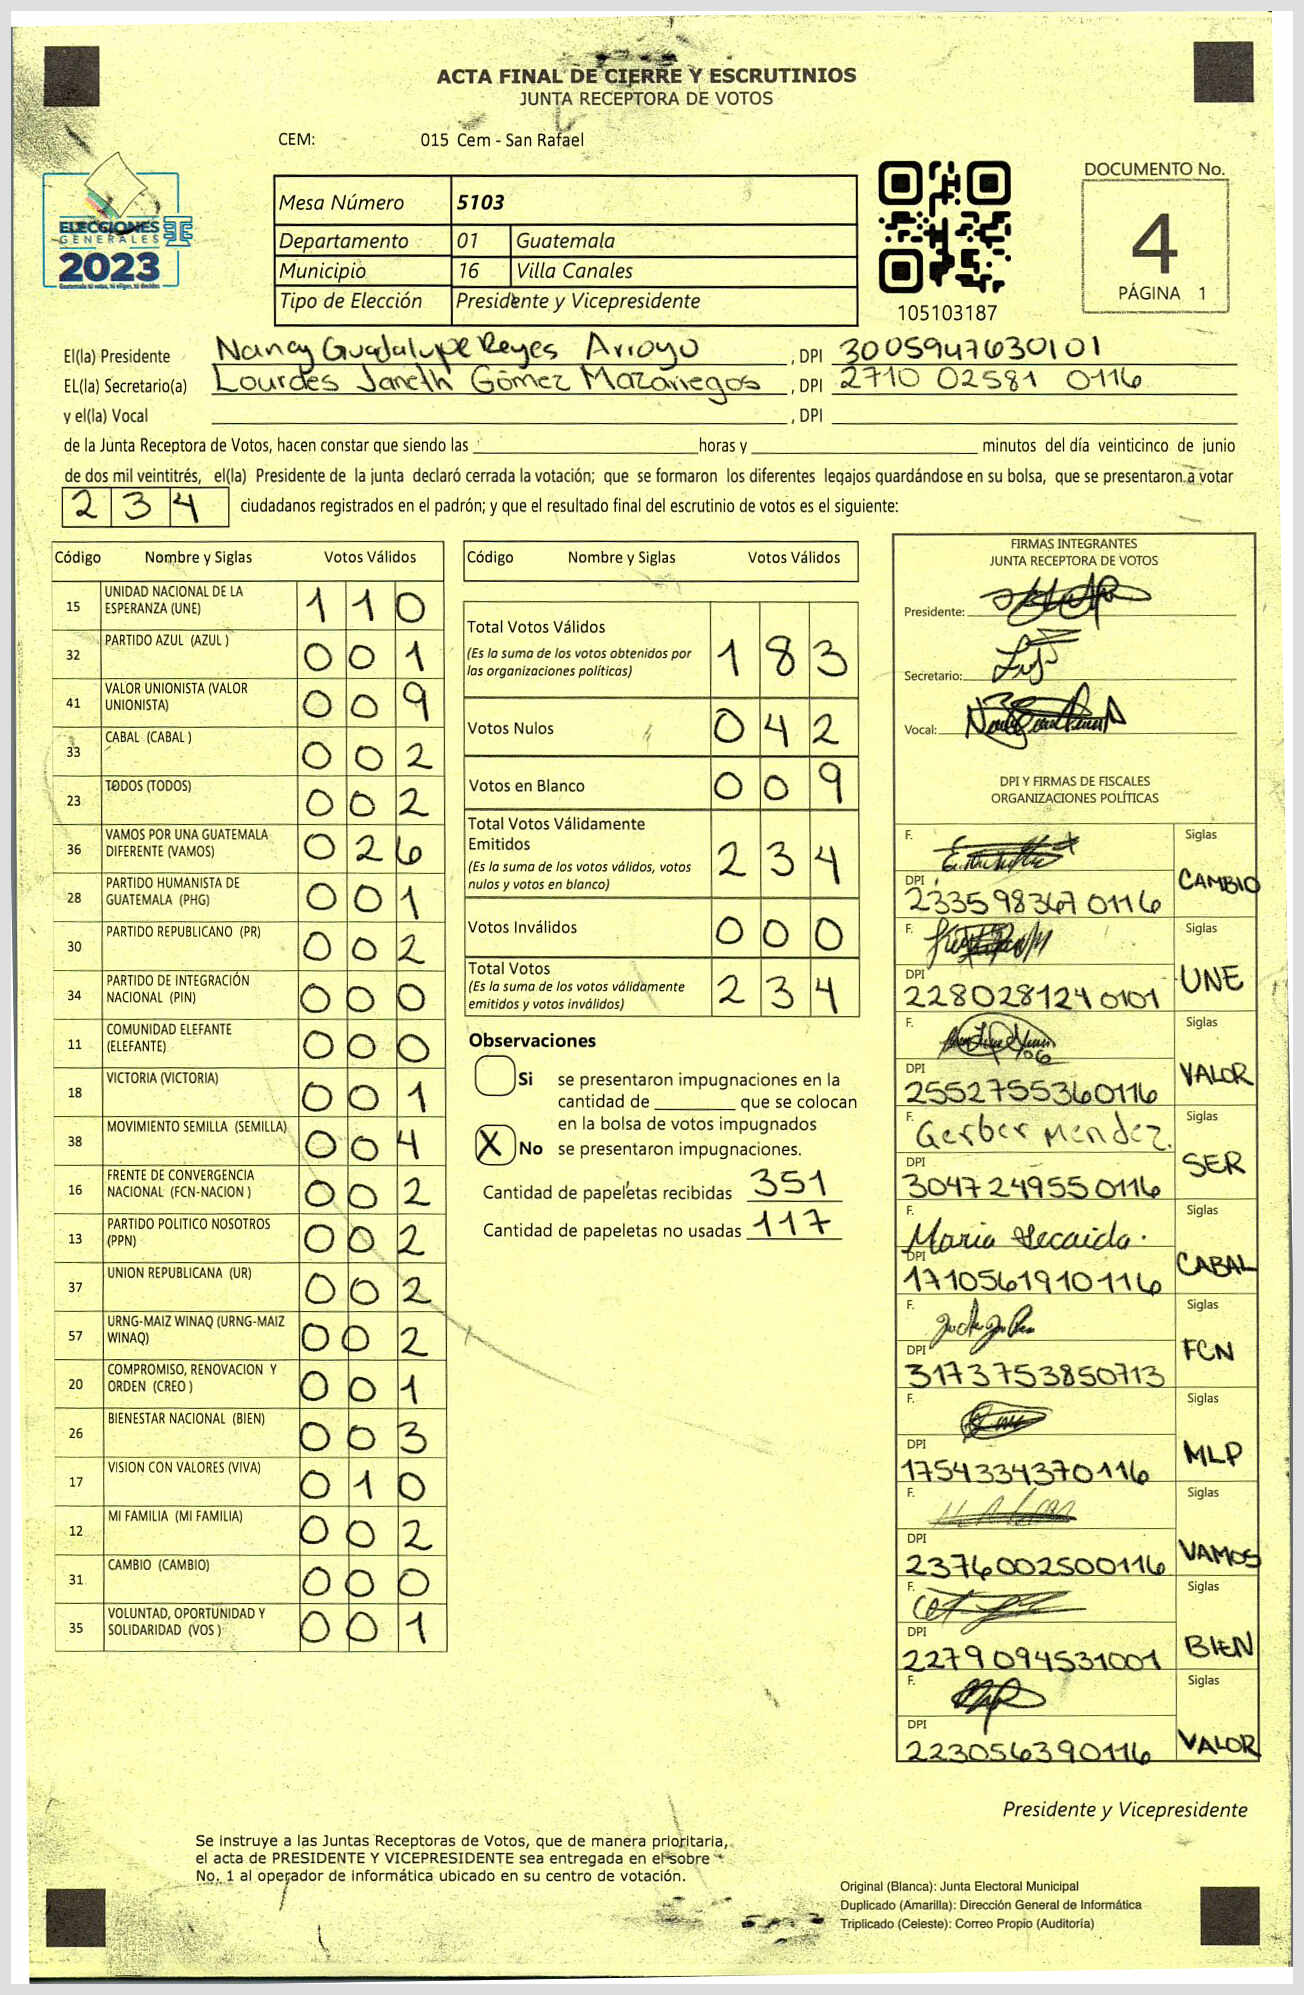 ACTA FINAL DE CIERRE Y ESCRUTINIOS
JUNTA RECEPTORA DE VOTOS
CEM: 015 Cem - San Rafael
ELECCIONES
GENERALES
2023
Mesa Número 5103
Departamento 01 Guatemala
Municipio 16 Villa Canales
Tipo de Elección Presidente y Vicepresidente
105103187
DOCUMENTO No.
4
PÁGINA 1
El(la) Presidente Nancy Guadalupe Reyes Arroyo , DPI 3005947630101
EL(la) Secretario(a) Lourdes Janeth Gómez Mazariegos , DPI 2710 02581 0116
y el(la) Vocal , DPI
de la Junta Receptora de Votos, hacen constar que siendo las horas y minutos del día veinticinco de junio
de dos mil veintitrés, el(la) Presidente de la junta declaró cerrada la votación; que se formaron los diferentes legajos guardándose en su bolsa, que se presentaron a votar
234 ciudadanos registrados en el padrón; y que el resultado final del escrutinio de votos es el siguiente:
Código Nombre y Siglas Votos Válidos
15 UNIDAD NACIONAL DE LA ESPERANZA (UNE) 110
32 PARTIDO AZUL (AZUL ) 001
41 VALOR UNIONISTA (VALOR UNIONISTA) 009
33 CABAL (CABAL ) 002
23 TODOS (TODOS) 002
36 VAMOS POR UNA GUATEMALA DIFERENTE (VAMOS) 026
28 PARTIDO HUMANISTA DE GUATEMALA (PHG) 001
30 PARTIDO REPUBLICANO (PR) 002
34 PARTIDO DE INTEGRACIÓN NACIONAL (PIN) 000
11 COMUNIDAD ELEFANTE (ELEFANTE) 000
18 VICTORIA (VICTORIA) 001
38 MOVIMIENTO SEMILLA (SEMILLA) 004
16 FRENTE DE CONVERGENCIA NACIONAL (FCN-NACION ) 002
13 PARTIDO POLITICO NOSOTROS (PPN) 002
37 UNION REPUBLICANA (UR) 002
57 URNG-MAIZ WINAQ (URNG-MAIZ WINAQ) 002
20 COMPROMISO, RENOVACION Y ORDEN (CREO ) 001
26 BIENESTAR NACIONAL (BIEN) 003
17 VISION CON VALORES (VIVA) 010
12 MI FAMILIA (MI FAMILIA) 002
31 CAMBIO (CAMBIO) 000
35 VOLUNTAD, OPORTUNIDAD Y SOLIDARIDAD (VOS ) 001
Código Nombre y Siglas Votos Válidos
Total Votos Válidos 183
(Es la suma de los votos obtenidos por
las organizaciones políticas)
Votos Nulos 042
Votos en Blanco 009
Total Votos Válidamente
Emitidos 234
(Es la suma de los votos válidos, votos
nulos y votos en blanco)
Votos Inválidos 000
Total Votos 234
(Es la suma de los votos válidamente
emitidos y votos inválidos)
Observaciones
Si se presentaron impugnaciones en la
cantidad de que se colocan
en la bolsa de votos impugnados
X No se presentaron impugnaciones.
Cantidad de papeletas recibidas 351
Cantidad de papeletas no usadas 117
FIRMAS INTEGRANTES
JUNTA RECEPTORA DE VOTOS
Presidente:
Secretario:
Vocal:
DPI Y FIRMAS DE FISCALES
ORGANIZACIONES POLÍTICAS
F. Siglas
DPI 2335983670116 CAMBIO
F. Siglas
DPI 2280281240101 UNE
F. Siglas
DPI 2552755360116 VALOR
F. Gerber Mendez. Siglas
DPI 3047249550116 SER
F. Maria Secaida. Siglas
DPI 1710561910116 CABAL
F. Siglas
DPI 3173753850713 FCN
F. Siglas
DPI 1754334370116 MLP
F. Siglas
DPI 2376002500116 VAMOS
F. Siglas
DPI 2279094531001 BIEN
F. Siglas
DPI 223056390116 VALOR
Presidente y Vicepresidente
Se instruye a las Juntas Receptoras de Votos, que de manera prioritaria,
el acta de PRESIDENTE Y VICEPRESIDENTE sea entregada en el sobre
No. 1 al operador de informática ubicado en su centro de votación.
Original (Blanca): Junta Electoral Municipal
Duplicado (Amarilla): Dirección General de Informática
Triplicado (Celeste): Correo Propio (Auditoría)